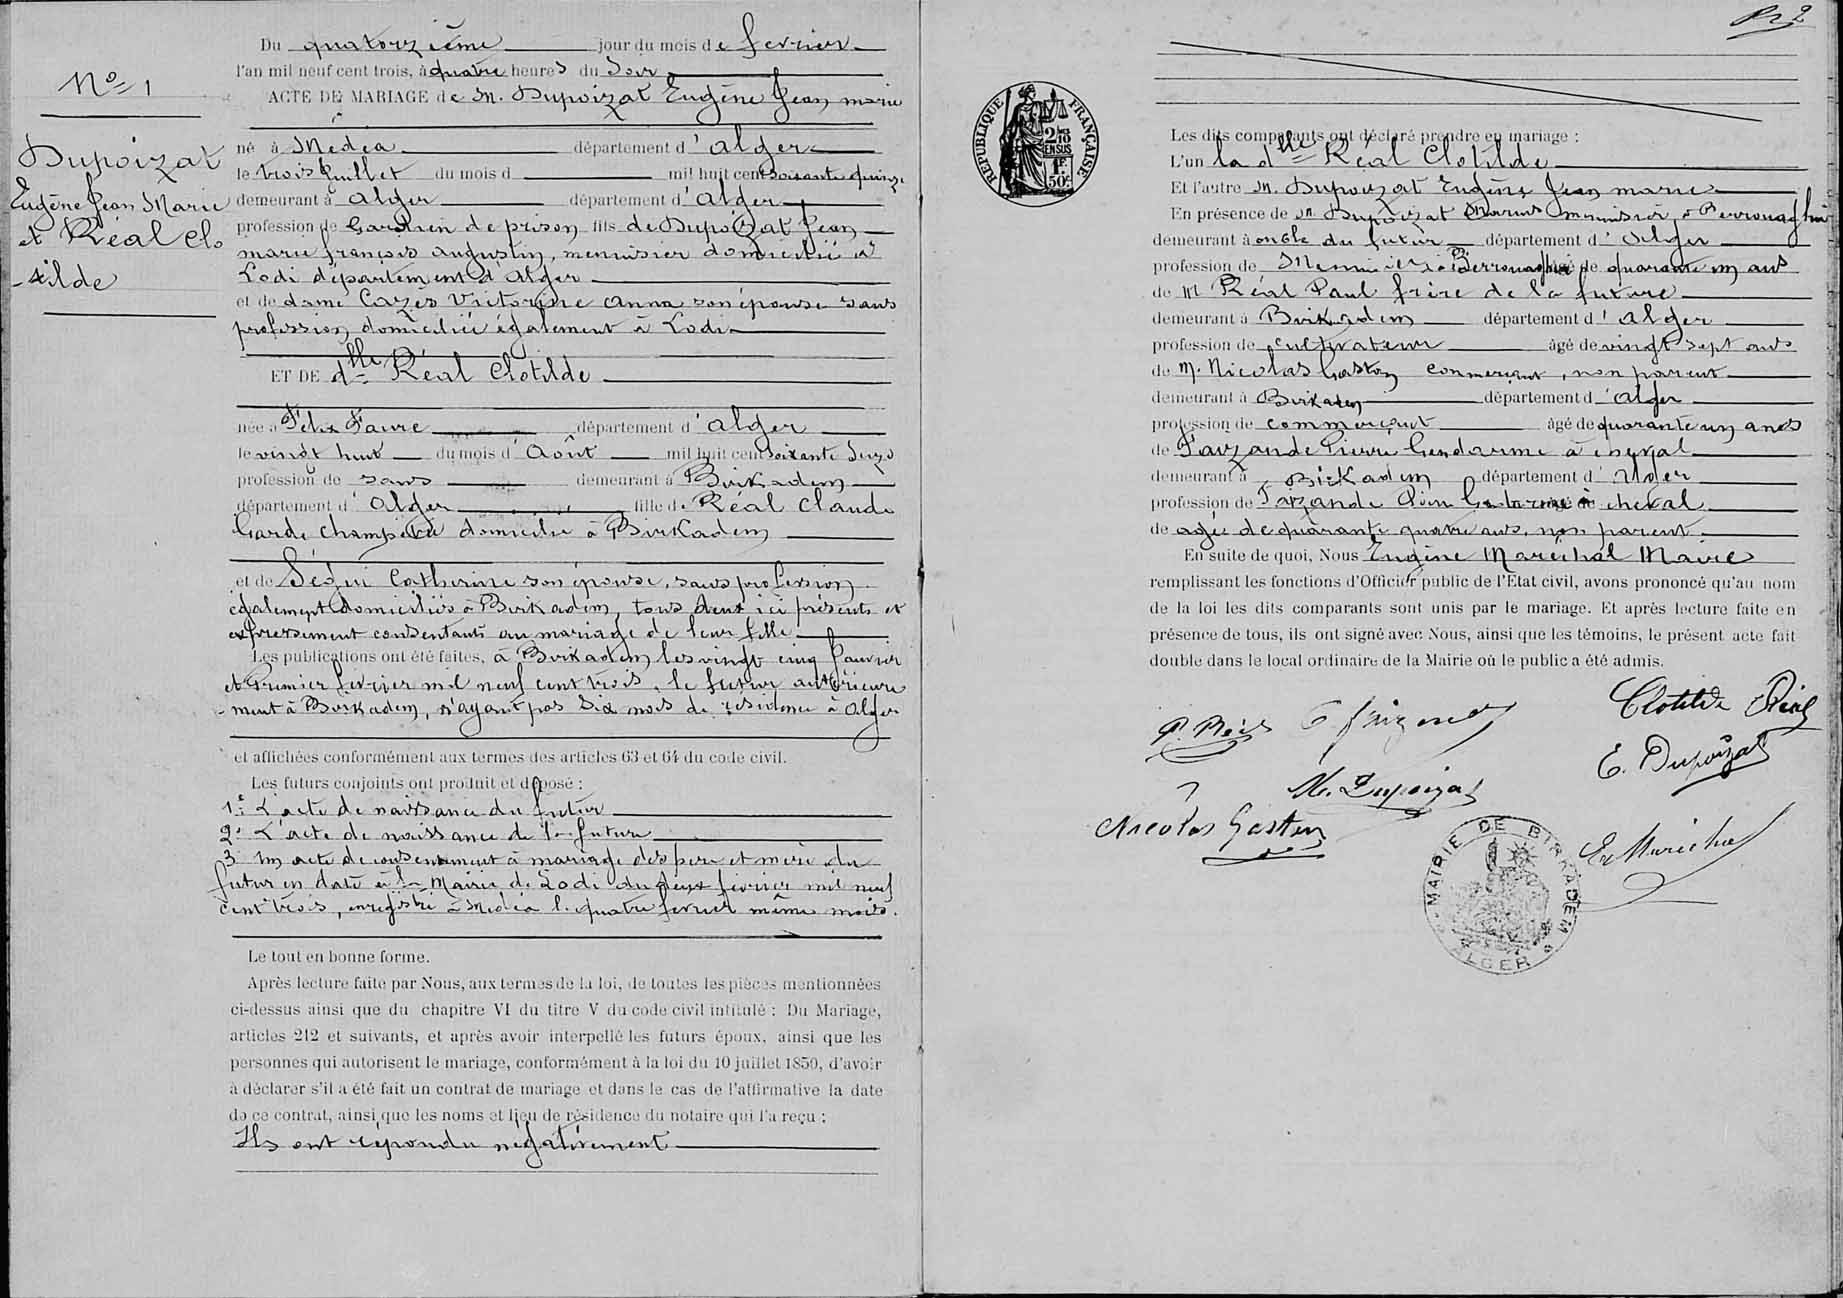 N° 1
Dupoizat
Eugène Jean Marie
et Réal Clo
-tilde
Du quatorzième jour du mois de fevrier
l'an mil neuf cent trois, à quatre heures du Soir
ACTE DE MARIAGE de M. Dupoizat Eugène Jean marie
né à Médéa département d'alger
le trois Juillet du mois d mil huit cent soixante quinze
demeurant à alger département d'alger
profession de Gardien de prison fils de Dupoizat Jean
marie françois augustin, menuisier domicilié à
Lodi département d'alger
et de dame Cazès Victorine anna son épouse sans
profession domiciliée également à Lodi
ET DE dlle Réal Clotilde
née à Félix Faure département d'alger
le vingt huit du mois d'Août mil huit cent soixante Seize
profession de sans demeurant à Birkadem
département d'alger fille de Réal Claude
Garde champêtre domicilié à Birkadem
et de Ségui Catherine son épouse, sans profession
également domiciliés à Birkadem, tous deux ici présents et
expressement consentants au mariage de leur fille
Les publications ont été faites, à Birkadem les vingt cinq Janvier
et Premier fevrier mil neuf cent trois, le futur antérieure
-ment à Birkadem, n'ayant pas Six mois de résidence à Alger
et affichées conformément aux termes des articles 63 et 64 du code civil.
Les futurs conjoints ont produit et déposé :
1° L'acte de naissance du futur
2° L'acte de naissance de la future
3 Un acte de consentement à mariage des pere et mère du
futur en date à la Mairie de Lodi du deux fevrier mil neuf
cent trois, enregistré à Médéa le quatre fevrier même mois.
Le tout en bonne forme.
Après lecture faite par Nous, aux termes de la loi, de toutes les pièces mentionnées
ci-dessus ainsi que du chapitre VI du titre V du code civil intitulé : Du Mariage,
articles 212 et suivants, et après avoir interpellé les futurs époux, ainsi que les
personnes qui autorisent le mariage, conformément à la loi du 10 juillet 1850, d'avoir
à déclarer s'il a été fait un contrat de mariage et dans le cas de l'affirmative la date
de ce contrat, ainsi que les noms et lieu de résidence du notaire qui l'a reçu :
Ils ont répondu négativement
2
RÉPUBLIQUE FRANÇAISE
2/10
EN SUS
1F.
50c
Les dits comparants ont déclaré prendre en mariage :
L'un la dlle Réal Clotilde
Et l'autre M. Dupoizat Eugène Jean marie
En présence de M. Dupoizat Marius menuisier à Berrouaghia
demeurant à oncle du futur département d'Alger
profession de Menuisier à Berrouaghia âgé de quarante un ans
de M Réal Paul frère de la future
demeurant à Birkadem département d'alger
profession de cultivateur âgé de vingt sept ans
de M. Nicolas Gaston commerçant, non parent
demeurant à Birkadem département d'alger
profession de commerçant âgé de quarante un ans
de Farzande Pierre Gendarme à cheval
demeurant à Birkadem département d'Alger
profession de Farzande Pierre Gendarme à cheval
de agée de quarante quatre ans, non parent
En suite de quoi, Nous Eugène Maréchal Maire
remplissant les fonctions d'Officier public de l'Etat civil, avons prononcé qu'au nom
de la loi les dits comparants sont unis par le mariage. Et après lecture faite en
présence de tous, ils ont signé avec Nous, ainsi que les témoins, le présent acte fait
double dans le local ordinaire de la Mairie où le public a été admis.
Clotilde Réal
P. Réal
E. Dupoizat
M. Dupoizat
Nicolas Gaston
Eg Maréchal
MAIRIE DE BIRKADEM
ALGER